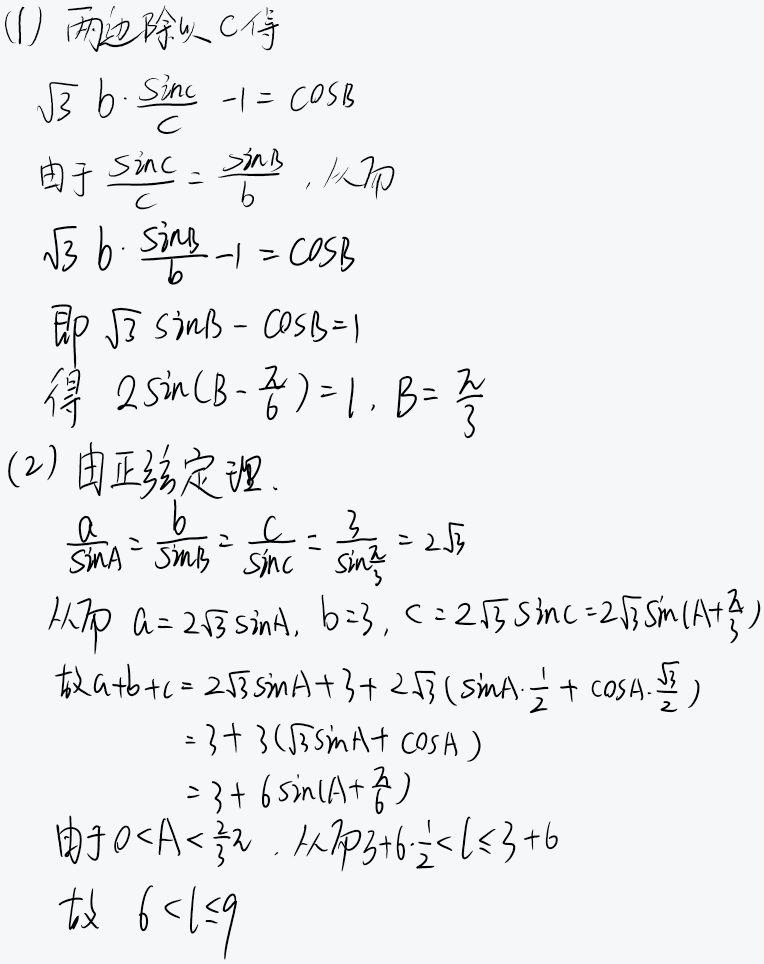 (1) 两边除以 c 得
√3 b · sinC/c - 1 = cosB
由于 sinC/c = sinB/b , 从而
√3 b · sinB/b - 1 = cosB
即 √3 sinB - cosB = 1
得 2sin(B - π/6) = 1 , B = π/3
(2) 由正弦定理 .
a/sinA = b/sinB = c/sinC = 3/sin(π/3) = 2√3
从而 a = 2√3 sinA , b = 3 , c = 2√3 sinC = 2√3 sin(A + π/3)
故 a+b+c = 2√3 sinA + 3 + 2√3 (sinA · 1/2 + cosA · √3/2)
= 3 + 3(√3 sinA + cosA)
= 3 + 6 sin(A + π/6)
由于 0 < A < 2/3 π . 从而 3 + 6 · 1/2 < l ≤ 3 + 6
故 6 < l ≤ 9